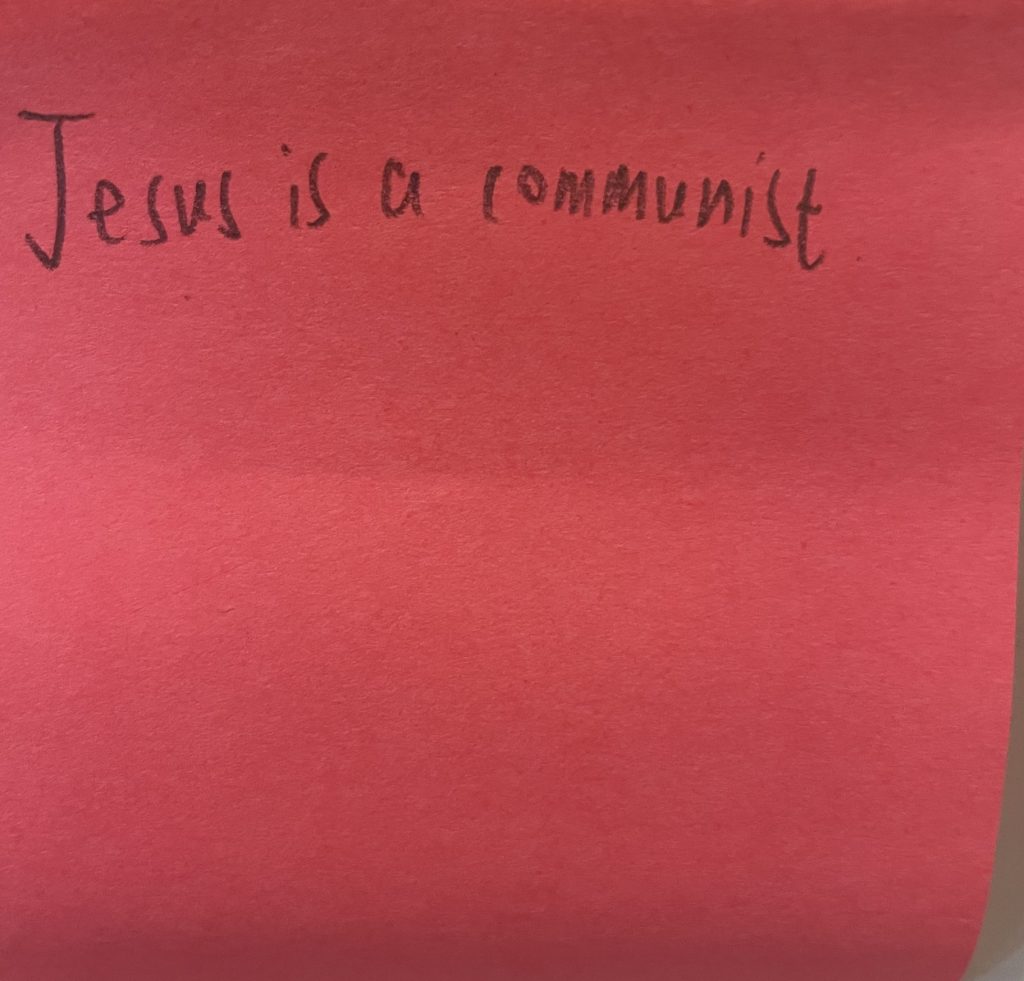 Jesus is a communist.